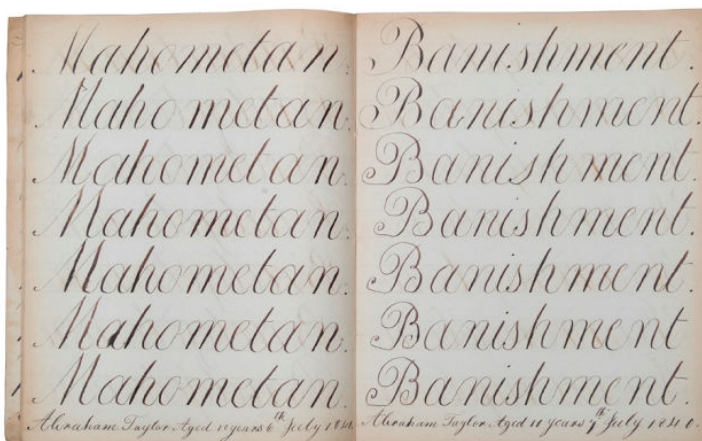 Mahometan.
Mahometan.
Mahometan.
Mahometan.
Mahometan.
Mahometan.
Mahometan.
Abraham Taylor Aged 10 years 6th July
Banishment.
Banishment.
Banishment.
Banishment.
Banishment.
Banishment
Banishment.
Abraham Taylor Aged 10 years 7th July